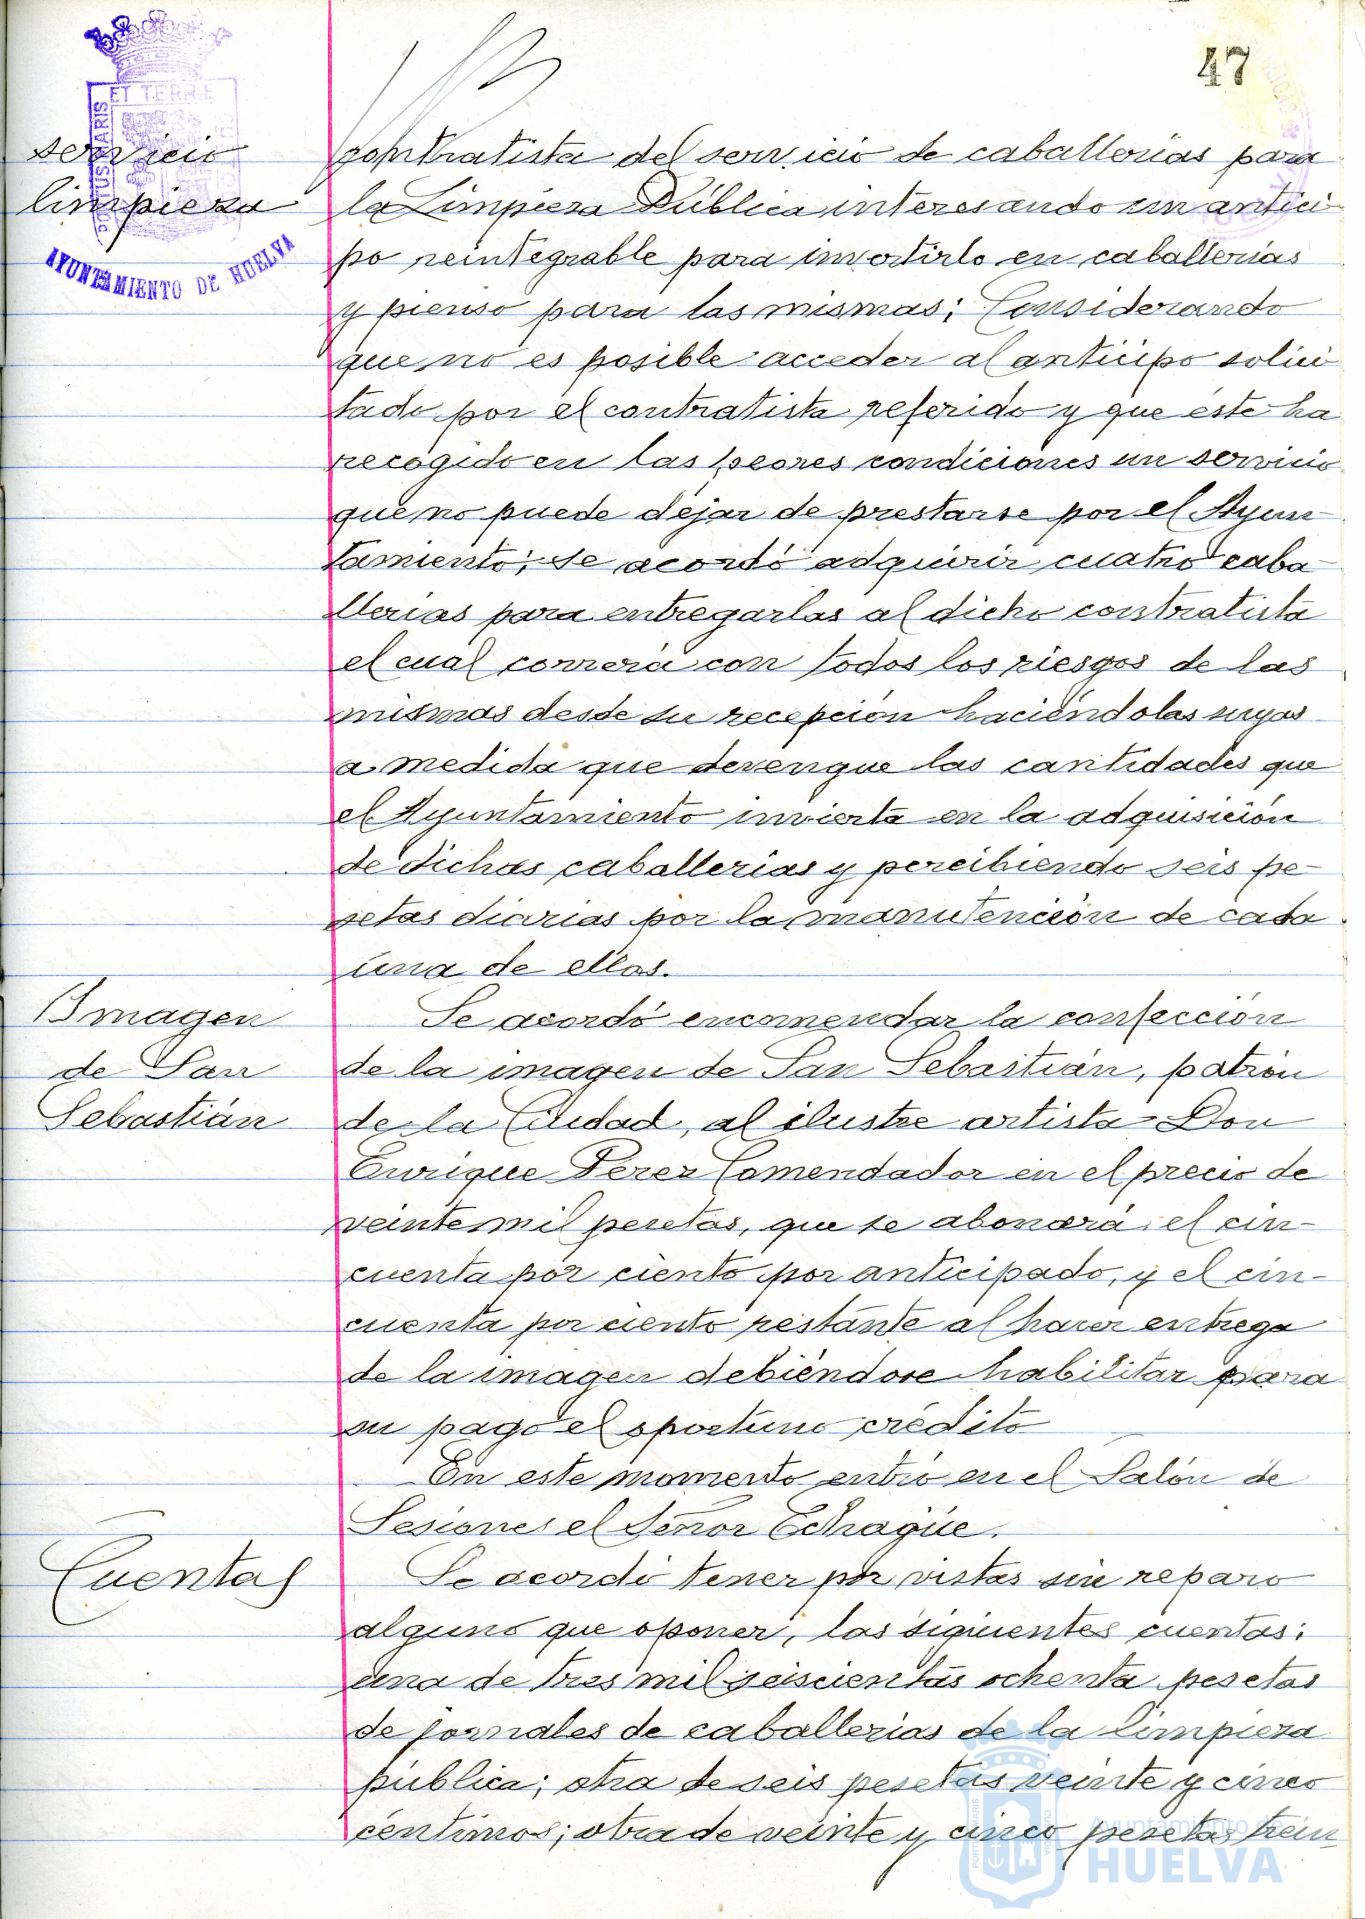 47
ET TERRÆ
PORTUS MARIS
AYUNTAMIENTO DE HUELVA
servicio
limpieza
contratista del servicio de caballerías para
la Limpieza Pública interesando un antici-
po reintegrable para invertirlo en caballerías
y pienso para las mismas; Considerando
que no es posible acceder al anticipo solici
tado por el contratista referido y que éste ha
recogido en las peores condiciones un servicio
que no puede dejar de prestarse por el Ayun-
tamiento; se acordó adquirir cuatro caba-
llerías para entregarlas al dicho contratista
el cual correrá con todos los riesgos de las
mismas desde su recepción haciéndolas suyas
a medida que devengue las cantidades que
el Ayuntamiento invierta en la adquisición
de dichas caballerías y percibiendo seis pe-
setas diarias por la manutención de cada
una de ellas.
Imagen
de San
Sebastián
Se acordó encomendar la confección
de la imagen de San Sebastián, patrón
de la Ciudad, al ilustre artista Don
Enrique Pérez Comendador en el precio de
veinte mil pesetas, que se abonará el cin-
cuenta por ciento por anticipado, y el cin-
cuenta por ciento restante al hacer entrega
de la imagen debiéndose habilitar para
su pago el oportuno crédito
En este momento entró en el Salón de
Sesiones el Señor Echagüe.
Cuentas
Se acordó tener por vistas sin reparo
alguno que oponer, las siguientes cuentas:
una de tres mil seiscientas ochenta pesetas
de jornales de caballerías de la limpieza
pública; otra de seis pesetas veinte y cinco
céntimos; otra de veinte y cinco pesetas trein-
Ayuntamiento de
HUELVA